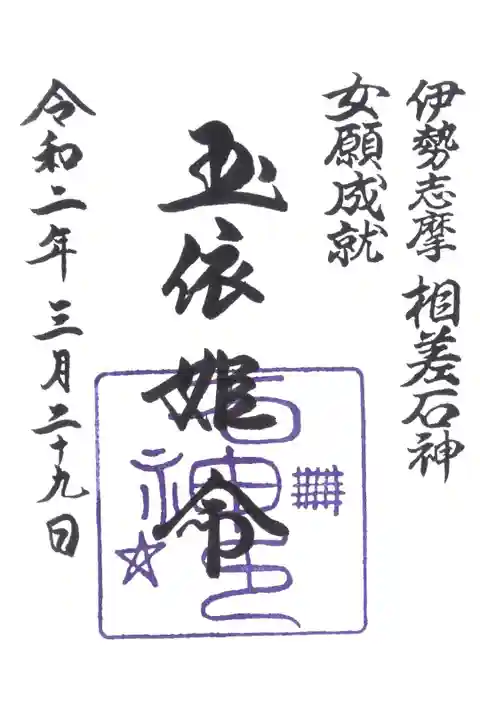 伊勢志摩 相差石神
女願成就
玉依姫命
令和二年 三月二十九日
石神